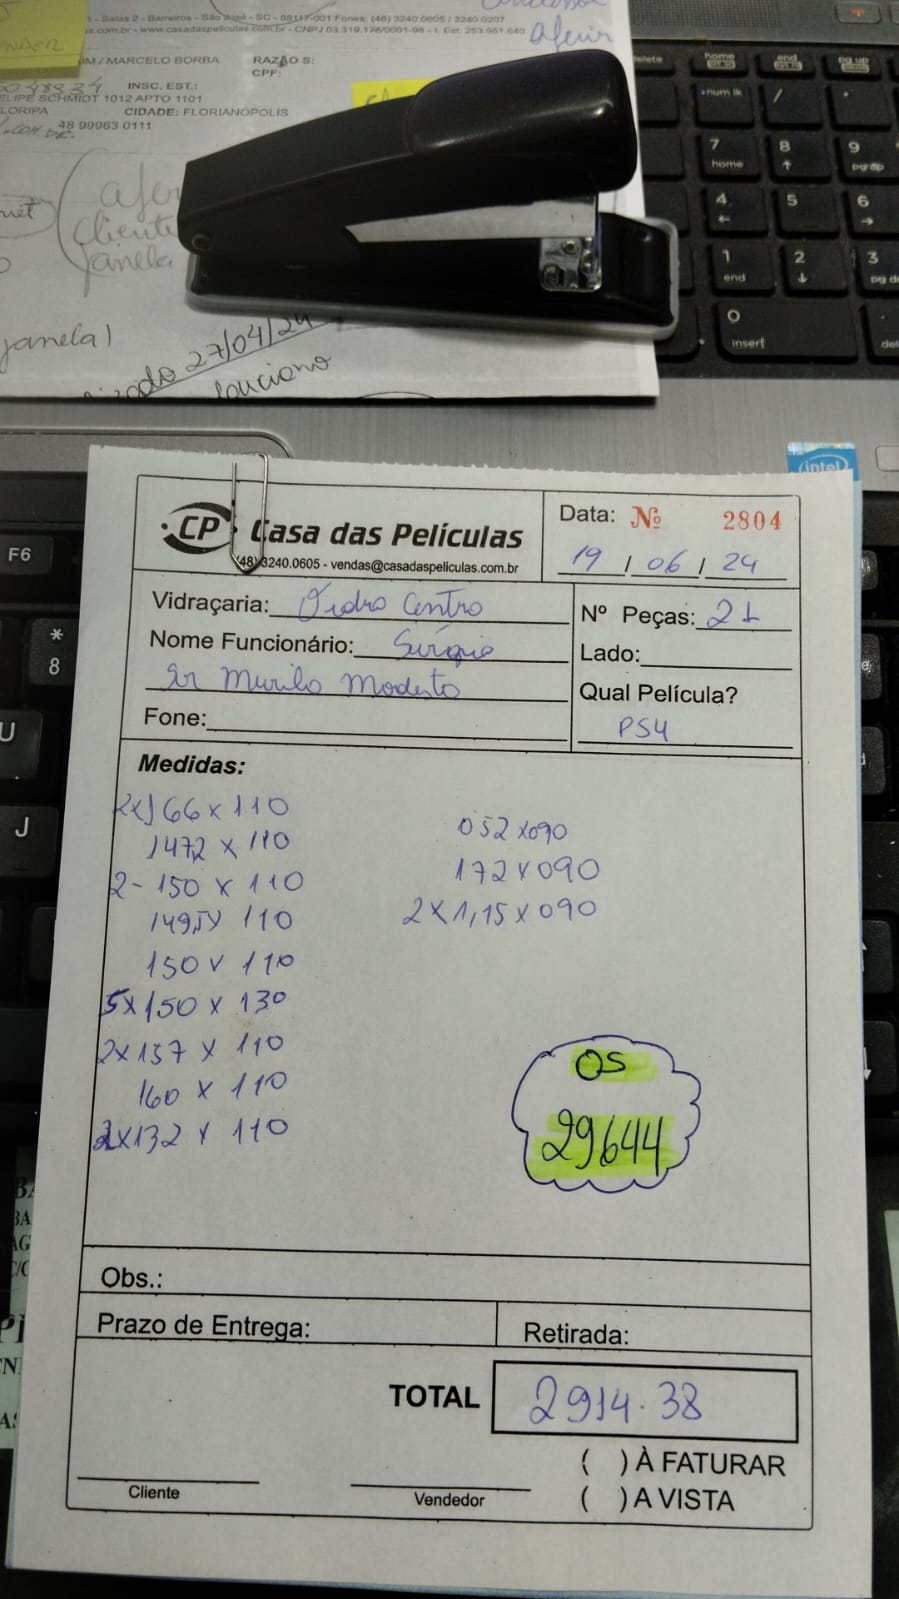 - Salas 2 - Barreiros - São José - SC - 88117-001 Fones: (48) 3240.0605 / 3240.0207
s.com.br - www.casadaspeliculas.com.br - CNPJ 03.319.178/0001-98 - I. Est. 253.951.640
aferir
UM / MARCELO BORBA RAZÃO S:
CPF:
INSC. EST.:
ELIPE SCHMIDT 1012 APTO 1101
LORIPA CIDADE: FLORIANÓPOLIS
48 99963 0111
Cliente
janela
janela)
27/04/24
Luciano
delete home end pg up
num lk / *
7 home 8 9 pgup
4 5 6
1 end 2 3 pg dn
0 insert del
intel
F6
* 8
U
J
CP Casa das Películas
(48) 3240.0605 - vendas@casadaspeliculas.com.br
Data: Nº 2804
19 / 06 / 24
Vidraçaria: Vidro Centro
Nome Funcionário: Sérgio
Sr Murilo Modesto
Fone:
Nº Peças: 21
Lado:
Qual Película?
PS4
Medidas:
2x166 x 110
147,2 x 110
2- 150 x 110
149,5 x 110
150 x 110
5x150 x 130
2x157 x 110
160 x 110
2x132 x 110
052 x 090
172 x 090
2 x 1,15 x 090
OS
29644
Obs.:
Prazo de Entrega:
Retirada:
TOTAL 2914.38
( ) À FATURAR
( ) A VISTA
Cliente
Vendedor